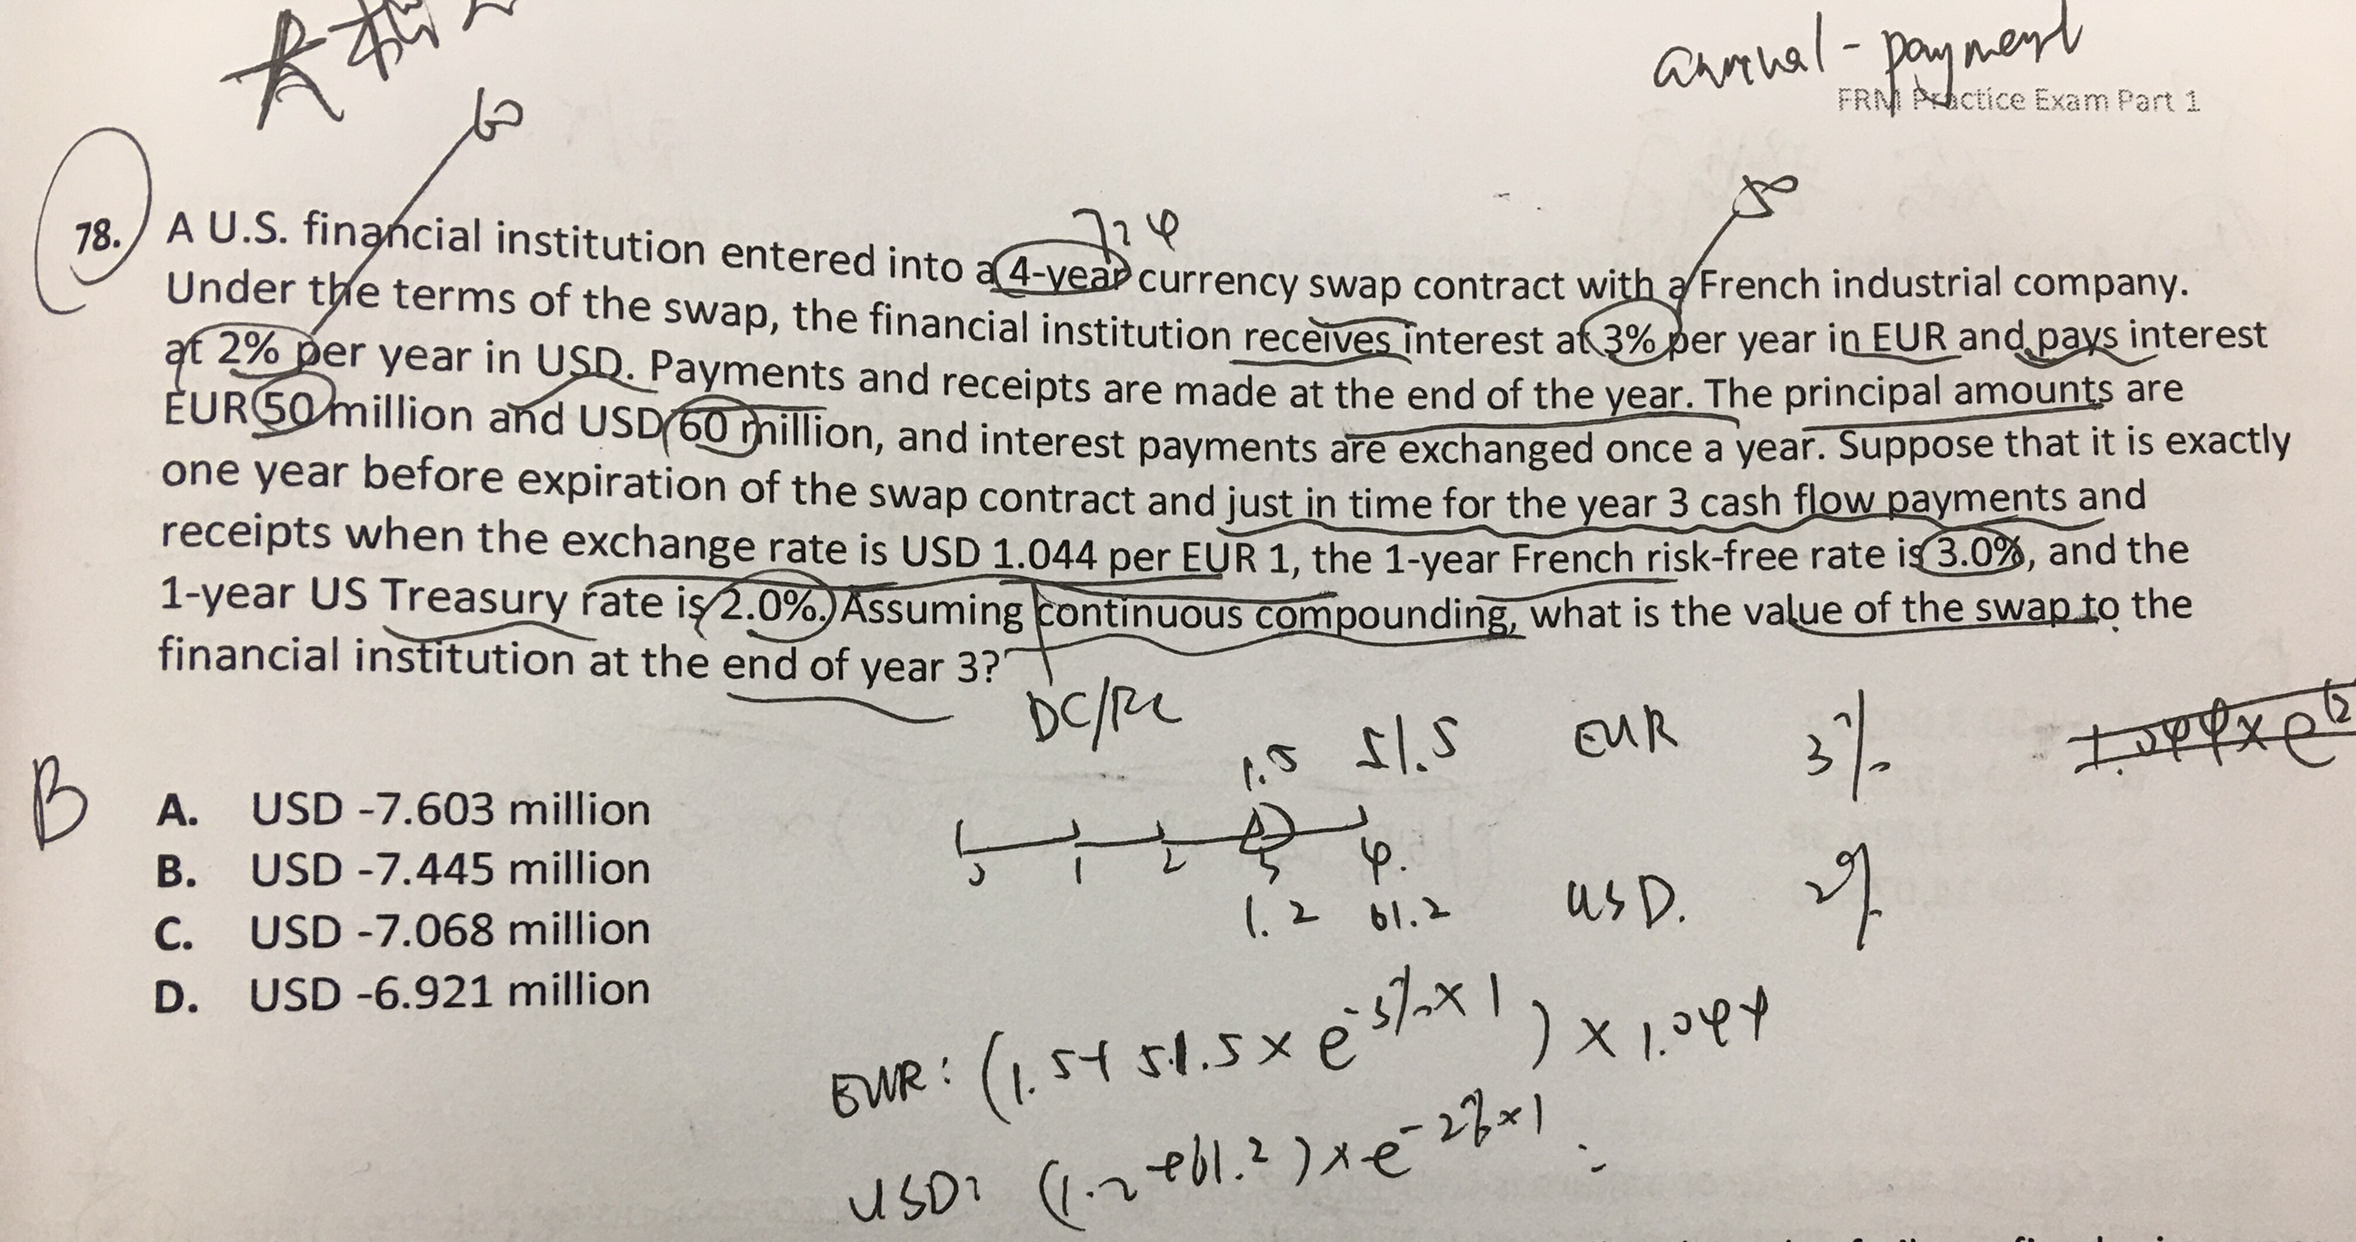 annual-payment
FRM Practice Exam Part 1
60
50
4
78. A U.S. financial institution entered into a 4-year currency swap contract with a French industrial company.
Under the terms of the swap, the financial institution receives interest at 3% per year in EUR and pays interest
at 2% per year in USD. Payments and receipts are made at the end of the year. The principal amounts are
EUR 50 million and USD 60 million, and interest payments are exchanged once a year. Suppose that it is exactly
one year before expiration of the swap contract and just in time for the year 3 cash flow payments and
receipts when the exchange rate is USD 1.044 per EUR 1, the 1-year French risk-free rate is 3.0%, and the
1-year US Treasury rate is 2.0%. Assuming continuous compounding, what is the value of the swap to the
financial institution at the end of year 3?
DC/FC
1.5 51.5 EUR 3% 1.044×e
B
A. USD -7.603 million
B. USD -7.445 million
C. USD -7.068 million
D. USD -6.921 million
0 1 2 3 4.
1.2 61.2 USD. 2%
EUR: (1.5+51.5×e^-3%×1)×1.044
USD: (1.2+61.2)×e^-2%×1 =